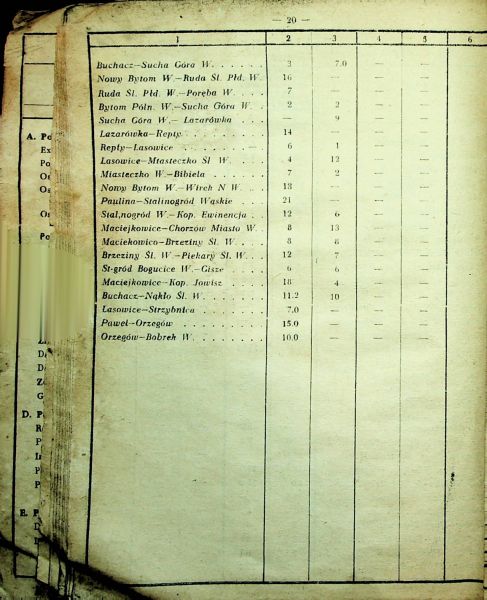 — 20 —
1 2 3 4 5 6
Buchacz—Sucha Góra W. . . . . . 3 7.0 — —
Nowy Bytom W.—Ruda Śl. Płd. W. 16 — — —
Ruda Śl. Płd. W.—Poręba W. . . . 7 — — —
Bytom Półn. W.—Sucha Góra W. . 2 2 — —
Sucha Góra W.— Lazarówka . . . — 9 — —
Lazarówka—Repty. . . . . . . . 14 — — —
Repty—Lasowice . . . . . . . 6 1 — —
Lasowice—Miasteczko Śl W. . . . 4 12 — —
Miasteczko W.—Bibiela . . . . . 7 2 — —
Nowy Bytom W.—Wirch N W. . . 18 — — —
Paulina—Stalinogród Wąskie . . . 21 — — —
Stal,nogród W.—Kop. Ewinencja . . 12 6 — —
Maciejkowice—Chorzów Miasto W. 8 13 — —
Maciekowice—Brzeziny Śl. W. . . 8 8 — —
Brzeziny Śl. W.—Piekary Śl. W. . . 12 7 — —
St-gród Bogucice W.—Gisze . . . 6 6 — —
Maciejkowice—Kop. Jowisz . . . . 18 4 — —
Buchacz—Nakło Śl. W. . . . . . 11.2 10 — —
Lasowice—Strzybnica . . . . . . 7.0 — — —
Paweł—Orzegów . . . . . . . . 15.0 — — —
Orzegów—Bobrek W. . . . . . . 10.0 — — —
A. Po
Ex
Po
Os
Po
D. P
E. P